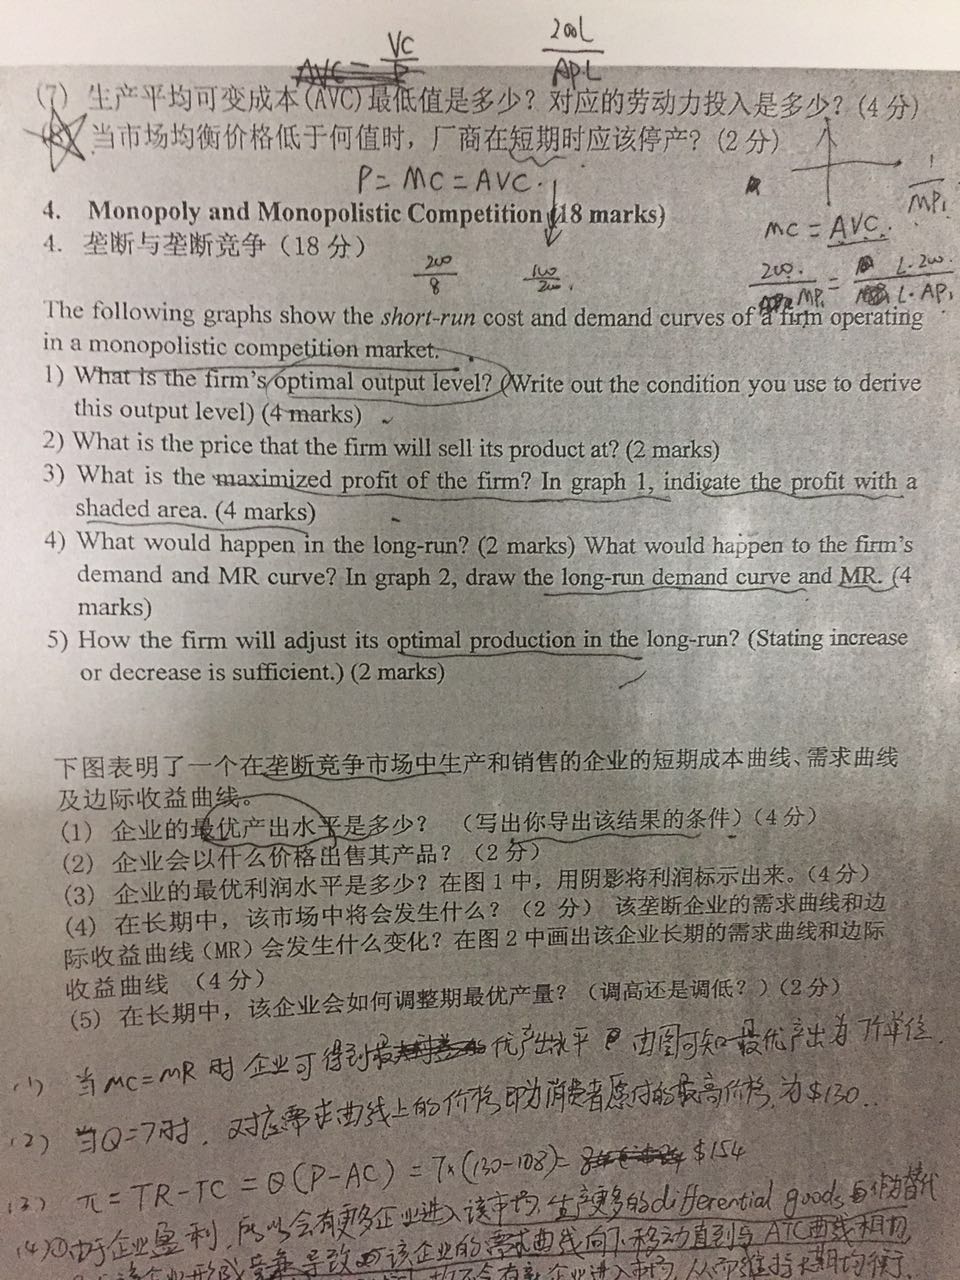 VC
200L
AVC = P
AP·L
(7) 生产平均可变成本(AVC)最低值是多少？对应的劳动力投入是多少？(4 分)
当市场均衡价格低于何值时，厂商在短期时应该停产？(2 分)
P = MC = AVC.
1
MP₁
4. Monopoly and Monopolistic Competition (18 marks)
MC = AVC.
4. 垄断与垄断竞争（18 分）
200
8
100
200
200.
MP₁
=
L·200
L·AP₁
The following graphs show the short-run cost and demand curves of a firm operating
in a monopolistic competition market.
1) What is the firm's optimal output level? (Write out the condition you use to derive
this output level) (4 marks)
2) What is the price that the firm will sell its product at? (2 marks)
3) What is the maximized profit of the firm? In graph 1, indicate the profit with a
shaded area. (4 marks)
4) What would happen in the long-run? (2 marks) What would happen to the firm's
demand and MR curve? In graph 2, draw the long-run demand curve and MR. (4
marks)
5) How the firm will adjust its optimal production in the long-run? (Stating increase
or decrease is sufficient.) (2 marks)
下图表明了一个在垄断竞争市场中生产和销售的企业的短期成本曲线、需求曲线
及边际收益曲线。
(1) 企业的最优产出水平是多少？（写出你导出该结果的条件）(4 分)
(2) 企业会以什么价格出售其产品？（2 分）
(3) 企业的最优利润水平是多少？在图 1 中，用阴影将利润标示出来。(4 分)
(4) 在长期中，该市场中将会发生什么？（2 分）该垄断企业的需求曲线和边
际收益曲线（MR）会发生什么变化？在图 2 中画出该企业长期的需求曲线和边际
收益曲线 （4 分）
(5) 在长期中，该企业会如何调整期最优产量？（调高还是调低？）（2 分）
(1) 当MC=MR时 企业可得到 优产出水平 由图可知最优产出为7个单位.
(2) 当Q=7时，对应需求曲线上的价格即为消费者愿付的最高价格，为$130..
(3) π = TR-TC = Q(P-AC) = 7×(130-108)= $154
(4)①由于企业盈利，所以会有更多企业进入该市场，生产更多的differential goods 作为替代
导致 该企业的需求曲线向下移动直到与ATC曲线相切,
企业进入市场，从而维持长期均衡